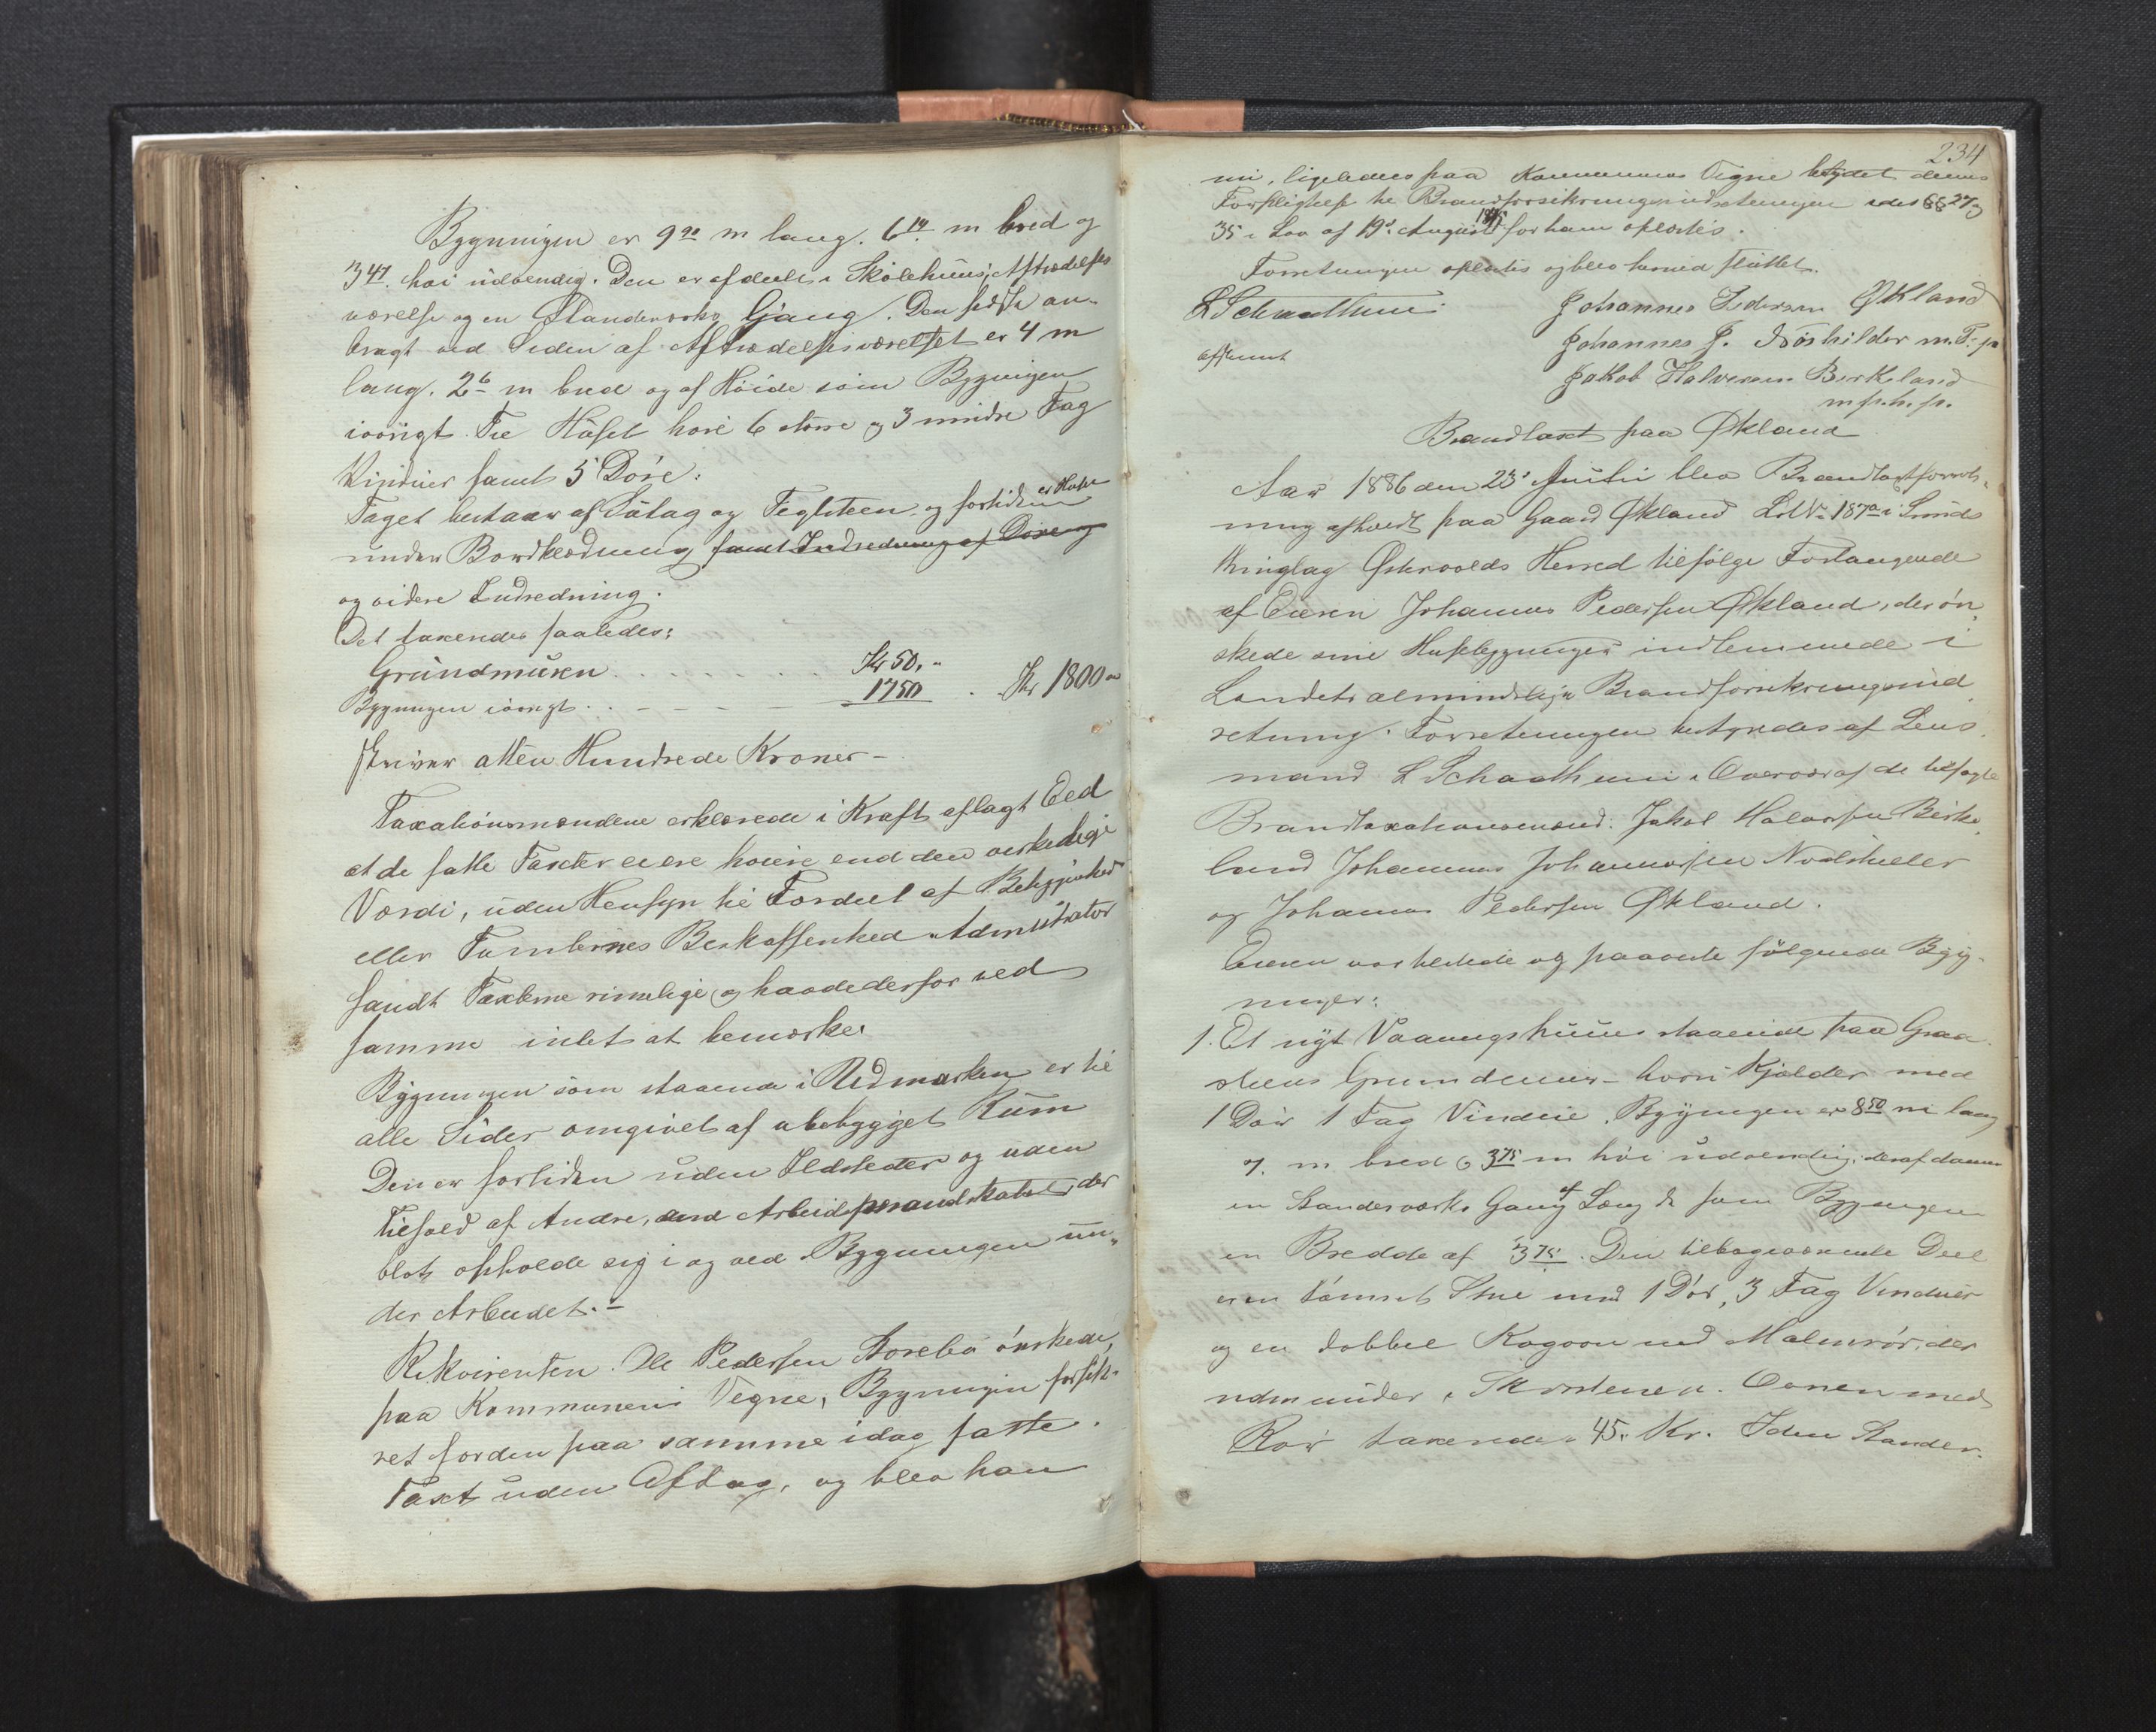 Bygningen er 9 90 m lang. 6 19 m bred og
3 47. høi udvendig. Den er afdeelt i Skolehuus, Aftrædelses
værelse og en Standerværks Gang. Den sidste an-
bragt ved Siden af Aftrædelsesværelset er 4 m
lang. 2 6 m bred og af Høide som Bygningen
iøvrigt. Til Huset høre 6 større og 3 mindre Fag
Vinduer samt 5 Døre.
Taget bestaar af Sutag og Teglsteen og fortiden
er Huset
under Bordklædning samt Indredning af Døre og
og videre Indredning.
Det taxeredes saaledes:
Grundmuren . . . . . . Kr 50. "
Bygningen iøvrigt . . - - - - 1750 . Kr 1800 "
skriver atten Hundrede Kroner -
Taxationsmændene erklærede i Kraft aflagt Eed
at de satte Taxter ei ere høiere end den virkelige
Værdi, uden Hensyn til Fordeel af Beliggenhed
eller Tomternes Beskaffenhed. Administrator
fandt Taxterne rimelige og havde derfor ved
samme intet at bemærke.
Bygningen som staaende i Udmarken er til
alle Sider omgivet af ubebygget Rum
Den er fortiden uden Ildsteder og uden
Tilhold af Andre, end Arbeidsmandskabet der
blot opholde sig i og ved Bygningen un-
der Arbeidet. -
Rekvirenten Ole Pedersen Storebø ønskede,
paa Kommunens Vegne, Bygningen forsik-
ret for den paa samme idag satte
Taxt uden Afdrag, og blev han
234
ni, ligeledes paa Kommunens Vegne betydet dennes
Forpligtelse til Brandforsikringsindretningen idet §§ 27 og
35 i Lov af 19d August 1845 for ham oplæstes.
Forretningen oplæstes og blev hermed sluttet.
L Schaathun. Johannes Pedersen Økland
Johannes J. m. P. p
afskrevet
Jakob Halvorsen Birkeland
m. p. h. p.
Brandtaxt paa Økland
Aar 1886 den 23d Juni blev Brandtaxtforret-
ning afholdt paa Gaard Økland LNo 187a i Sunds
thinglag Østervolds Herred tilfølge Forlangende
af Eieren Johannes Pedersen Økland, der øn-
skede sine Husebygninger indlemmede i
Landets almindelige Brandforsikringsind
retning. Forretningen bestyredes af Lens
mand L Schaathun i Overvær af de tilsagte
Brandtaxationsmænd: Jakob Halvorsen Birke
land Johannes Johannessen
og Johannes Pedersen Økland.
Eieren var tilstede og paaviste følgende Byg-
ninger:
1. Et nyt Vaaningshuus staaende paa Graa
steens Grundmur - hvori Kjælder med
1 Dør 1 Fag Vindue. Bygningen er 8 50 m lang
7. m bred og 3 75 m høi udvendig. deraf danner
en Standerværks Gang af Længde som Bygningen
en Bredde af 3 75. Den tilbageværende Deel
er en tømret Stue med 1 Dør, 3 Fag Vinduer
og en dobbel Kogovn med Malmrør, der
udmunder i Skorstenen. Ovnen med
Rør taxeredes 45. Kr. I den Stander-